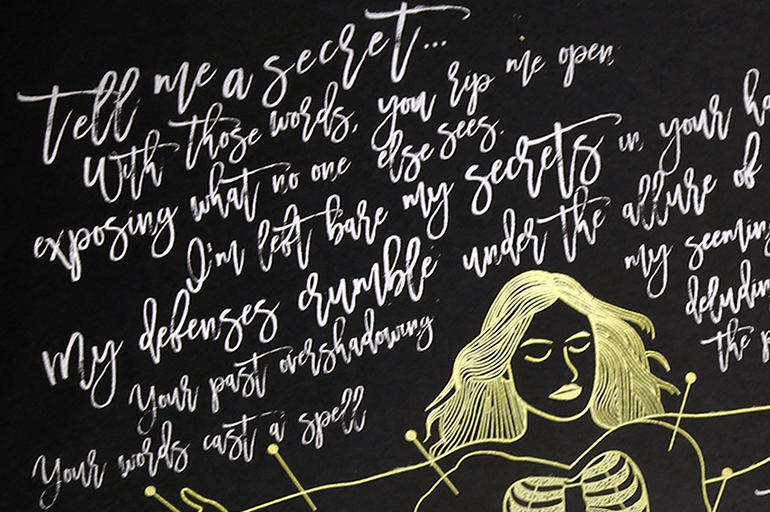 Tell me a secret...
With those words, you rip me open
exposing what no one else sees.
I'm left bare my secrets in your
My defenses crumble under the allure of
Your past overshadowing my
Your words cast a spell
the